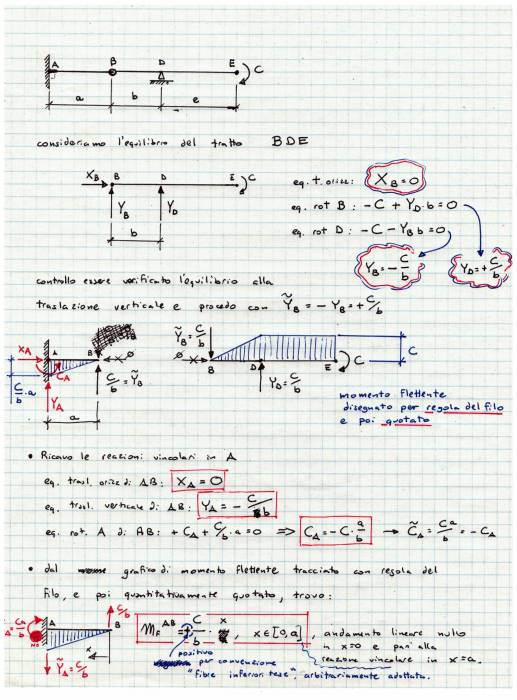 A B D E C
a b e
consideriamo l'equilibrio del tratto BDE
X_B B D E C
Y_B Y_D
b
eq. t. orizz: X_B = 0
eq. rot B: -C + Y_D·b = 0
eq. rot D: -C - Y_B b = 0
Y_B = - C/b
Y_D = + C/b
controllo essere verificato l'equilibrio alla
traslazione verticale e procedo con Ỹ_B = - Y_B = + C/b
X_A A B
C_A
C/b · a
Y_A
C/b = Ỹ_B
a
Ỹ_B = C/b
B D E C
Y_D = C/b
C
momento flettente
disegnato per regola del filo
e poi quotato
• Ricavo le reazioni vincolari in A
eq. trasl. orizz di AB: X_A = 0
eq. trasl. verticale di AB: Y_A = - C/b
eq. rot. A di AB: + C_A + C/b · a = 0 => C_A = - C · a/b → C̃_A = Ca/b = - C_A
• dal grafico di momento flettente tracciato con regola del
filo, e poi quantitativamente quotato, trovo:
A B
C/b
NO
x
Ỹ_A = C/b
m_f^AB = + C/b · x , x ∈ [0,a] , andamento lineare nullo
in x=0 e pari alla
reazione vincolare in x=a.
positivo
per convenzione
"fibre inferiori tese", arbitrariamente adottata.